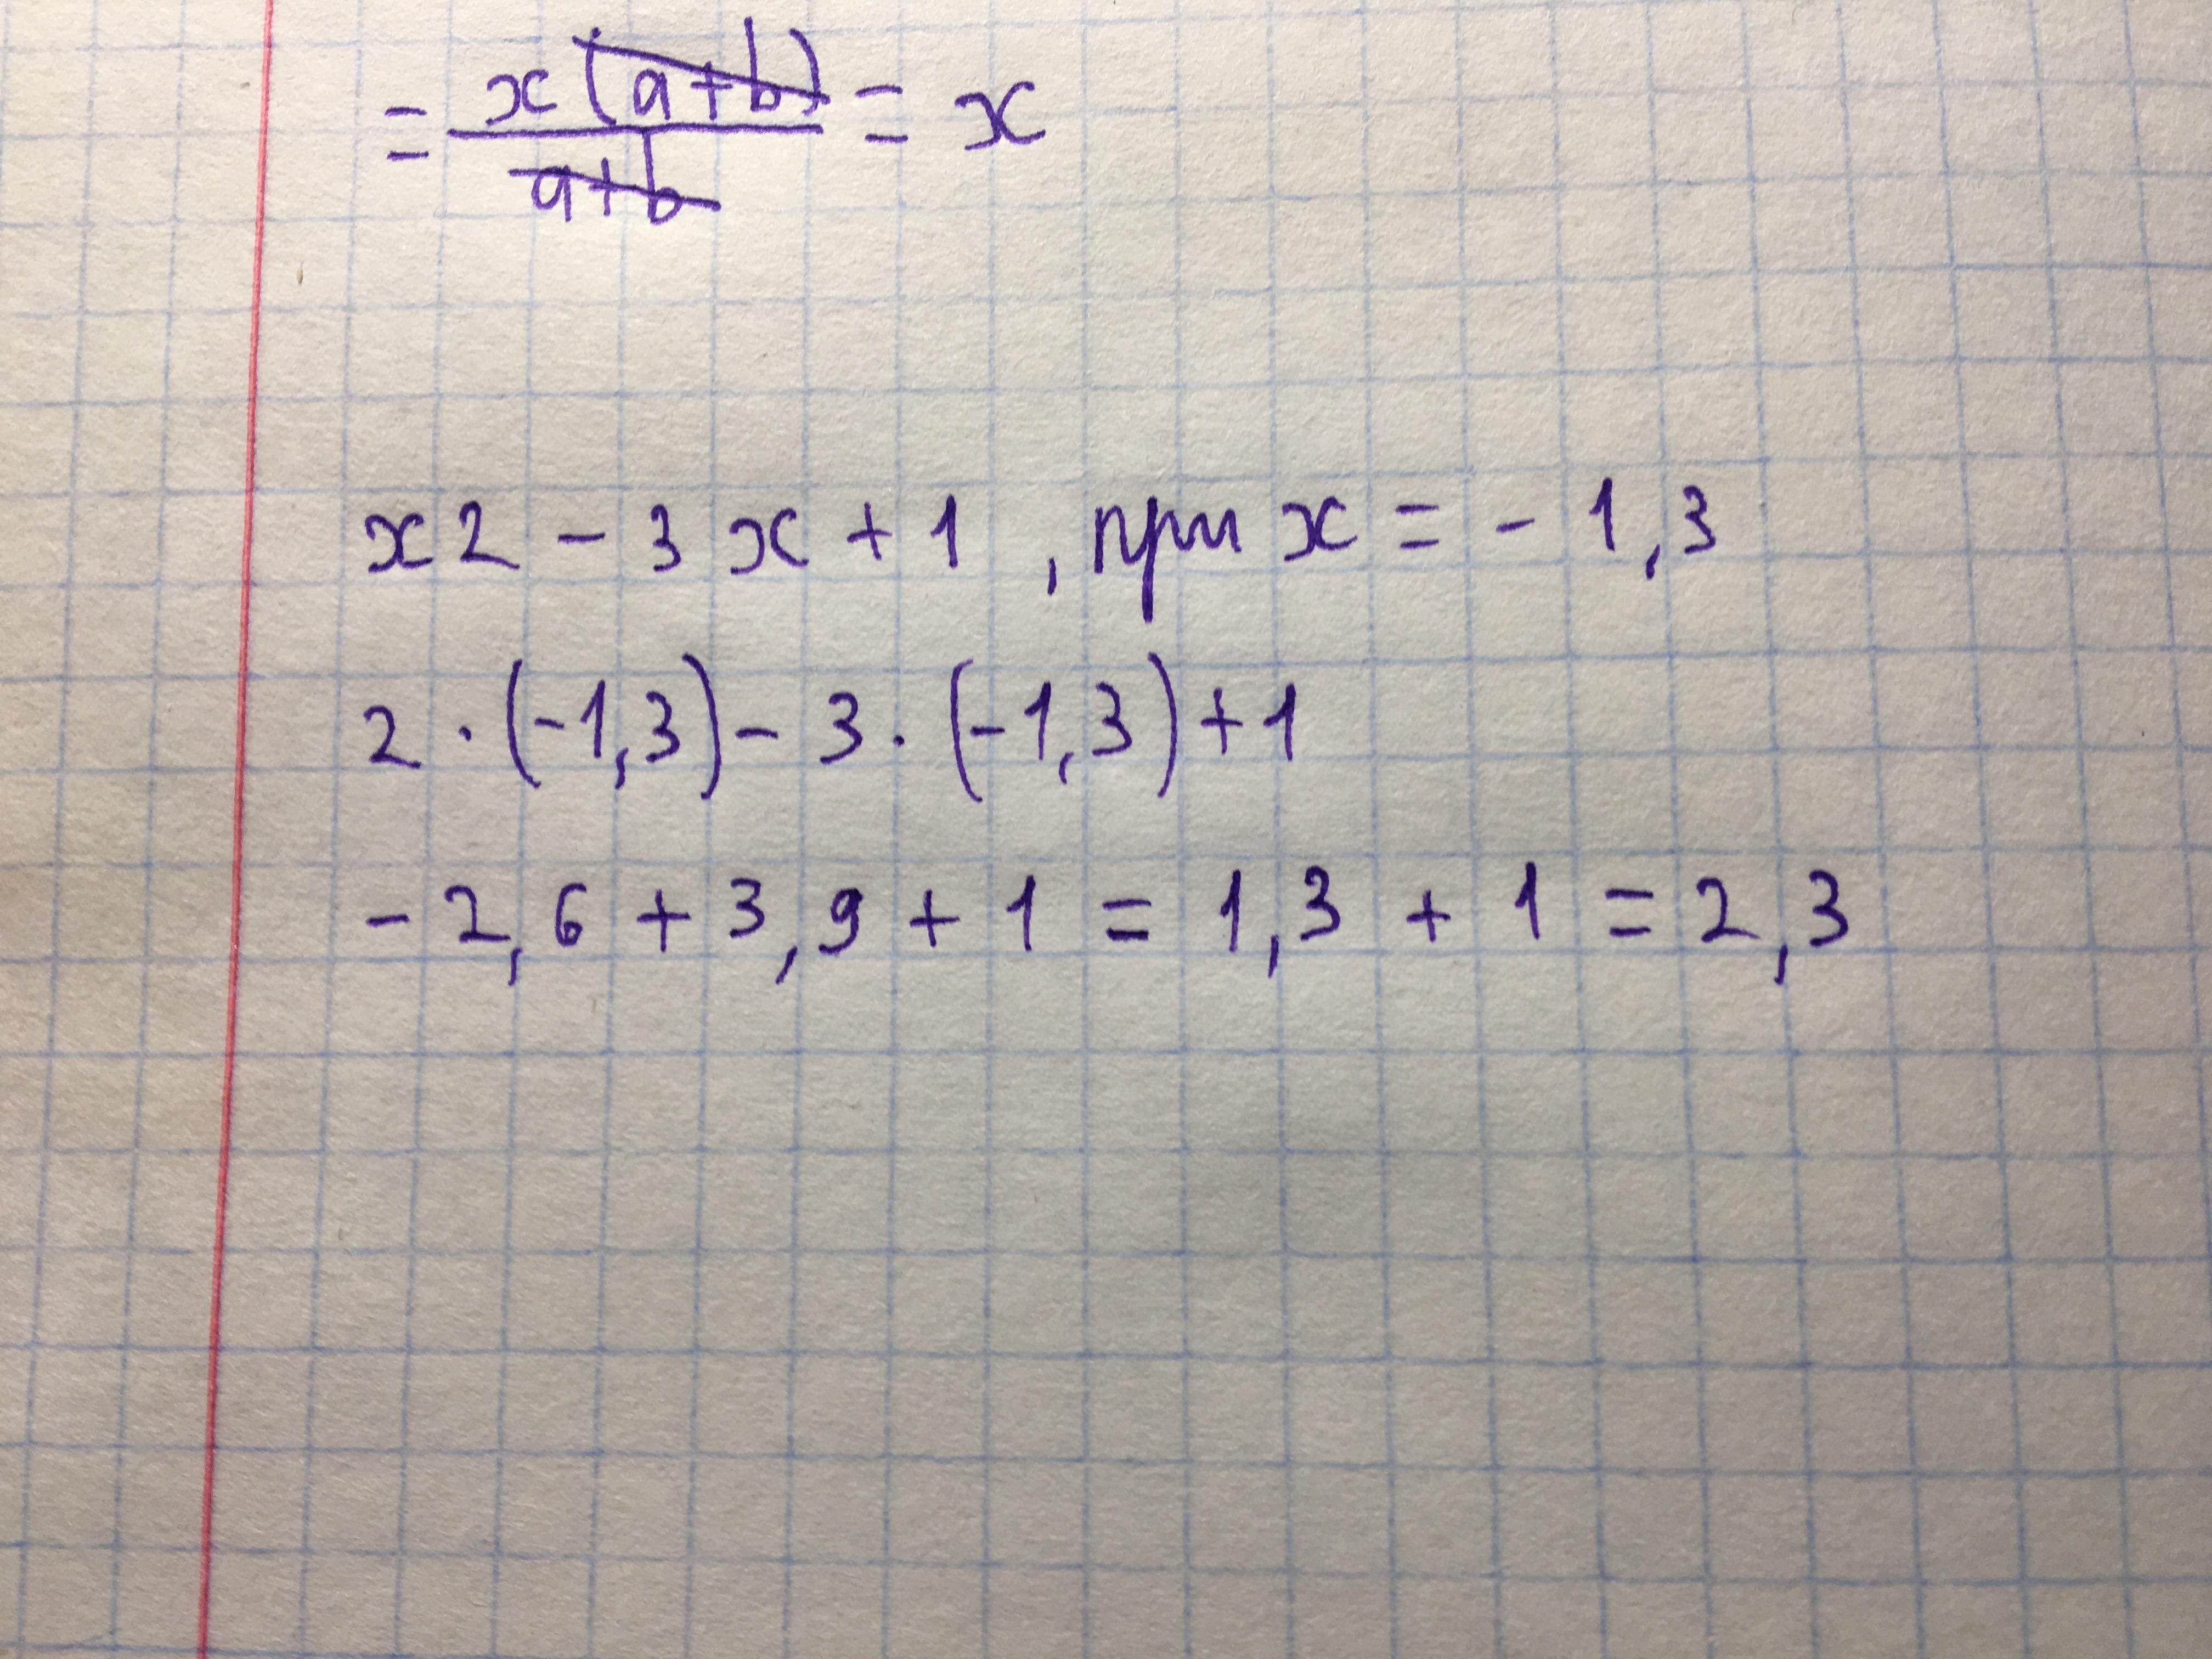 = x(a+b)/a+b = x
x2 - 3x + 1 , при x = - 1,3
2 · (-1,3) - 3 · (-1,3) + 1
- 2,6 + 3,9 + 1 = 1,3 + 1 = 2,3